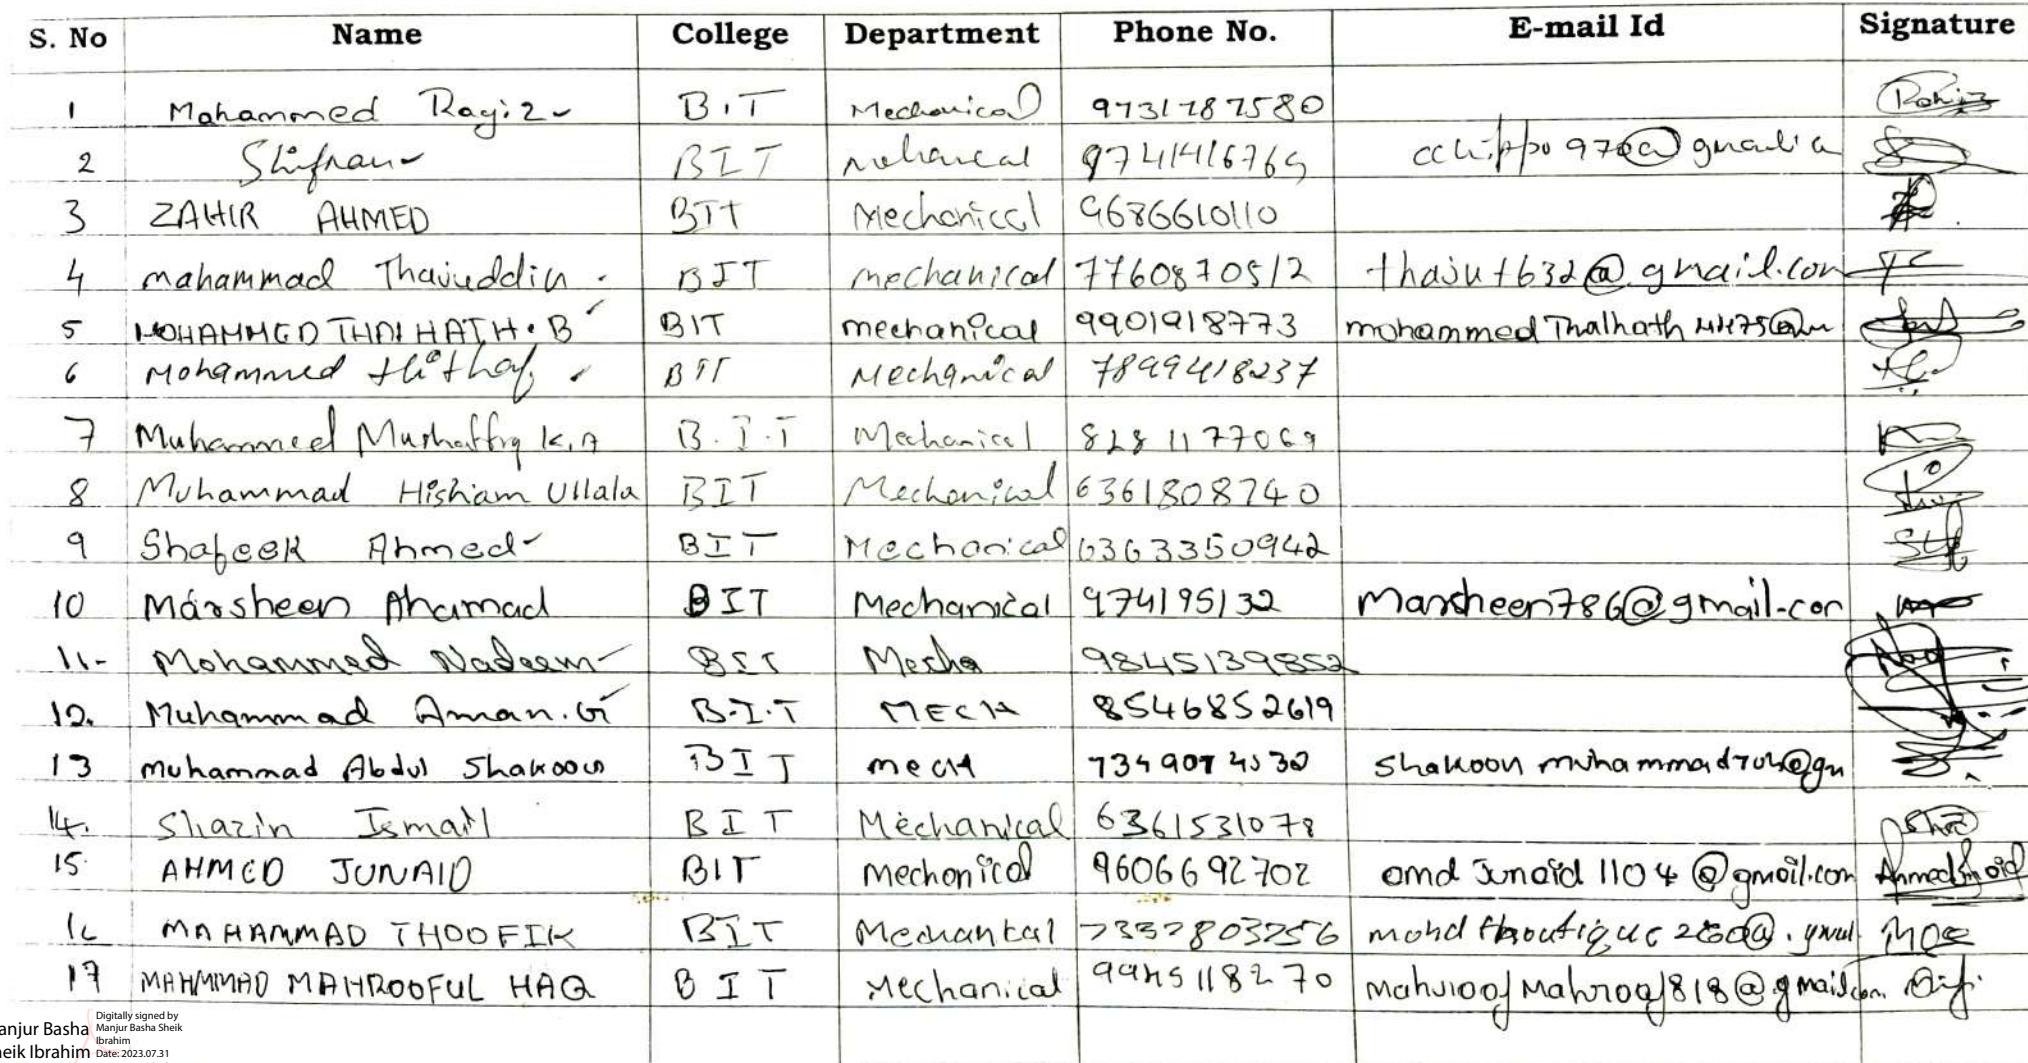 S. No Name College Department Phone No. E-mail Id Signature
1 Mohammed Ragiz B.I.T Mechanical 9731787580
2 Shifran BIT 9741416769
3 ZAHIR AHMED BIT Mechanical 9686610110
4 mahammad Thajuddin. BIT mechanical 7760870512 thajut632@gmail.com
5 MOHAMMED THALHATH.B BIT mechanical 9901918773 mohammed Thalhath
6 Mohammed BIT Mechanical 7899418237
7 Muhammed K.A B.I.T Mechanical 8281177069
8 Muhammad Hisham Ullala BIT Mechanical 6361808740
9 Shafeek Ahmed BIT Mechanical 6363350942
10 Marsheen Ahamad BIT Mechanical 974195132 Marsheen786@gmail.com
11- Mohammed Nadeem BIT 9845139852
12. Muhammad Aman.G B.I.T MECH 8546852619
13 muhammad Abdul Shakoor BIT mecH 7349074530
14. Shazin Ismail BIT Mechanical 6361531078
15 AHMED JUNAID BIT Mechanical 9606692702 amd Junaid 1104@gmail.com Ahmed Junaid
16 MAHAMMAD THOOFIK BIT Mechanical
17 MAHMMAD MAHROOFUL HAQ BIT Mechanical 9945118270 mahroof Mahroof818@gmail.com
anjur Basha
eik Ibrahim
Digitally signed by
Manjur Basha Sheik
Ibrahim
Date: 2023.07.31